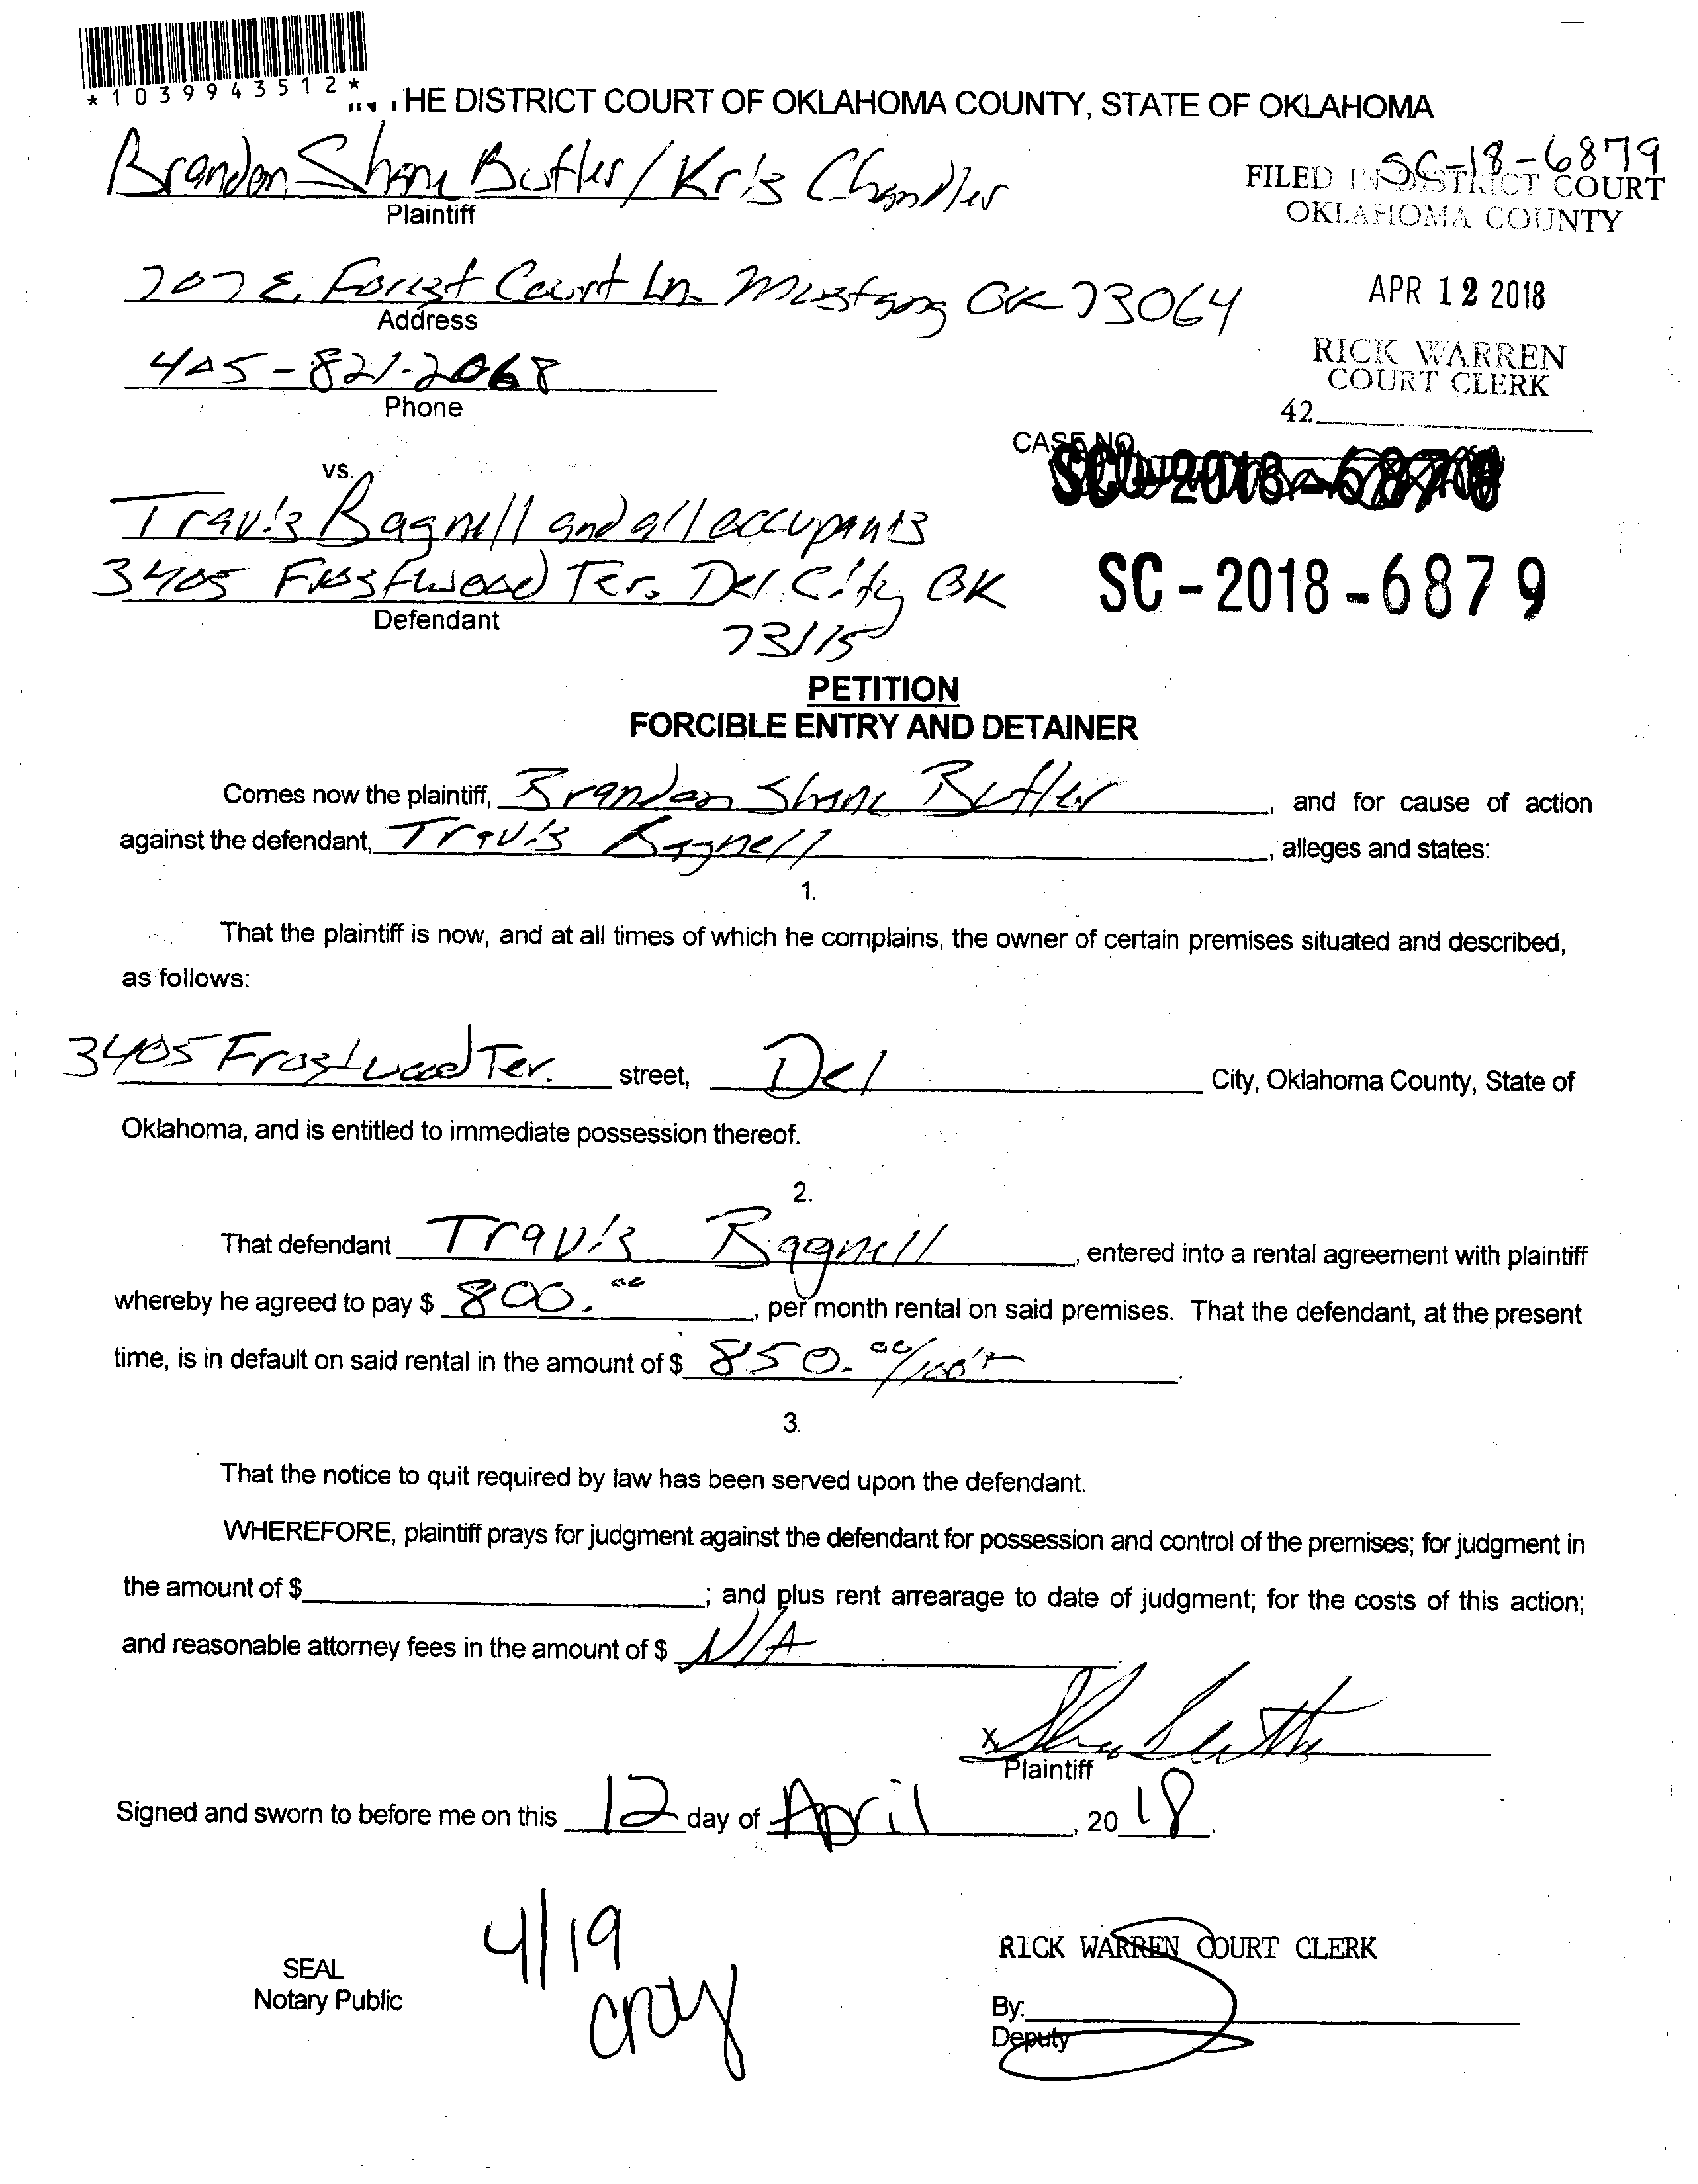 *1039943512*
THE DISTRICT COURT OF OKLAHOMA COUNTY, STATE OF OKLAHOMA
Brandon Shane Butler / Kris Chandler
Plaintiff
SC-18-6879
FILED IN DISTRICT COURT
OKLAHOMA COUNTY
707 E. Forest Court Ln. Mustang OK 73064
Address
APR 12 2018
405-821-2068
Phone
RICK WARREN
COURT CLERK
42
CASE NO.
vs.
Travis Bagnell and all occupants
3405 Frostwood Ter. Del City OK
73115
Defendant
SC-2018-6879
PETITION
FORCIBLE ENTRY AND DETAINER
Comes now the plaintiff, Brandon Shane Butler, and for cause of action
against the defendant, Travis Bagnell, alleges and states:
1.
That the plaintiff is now, and at all times of which he complains, the owner of certain premises situated and described,
as follows:
3405 Frostwood Ter. street, Del City, Oklahoma County, State of
Oklahoma, and is entitled to immediate possession thereof.
2.
That defendant Travis Bagnell, entered into a rental agreement with plaintiff
whereby he agreed to pay $ 800.00, per month rental on said premises. That the defendant, at the present
time, is in default on said rental in the amount of $ 850.00/100.
3.
That the notice to quit required by law has been served upon the defendant.
WHEREFORE, plaintiff prays for judgment against the defendant for possession and control of the premises; for judgment in
the amount of $; and plus rent arrearage to date of judgment; for the costs of this action;
and reasonable attorney fees in the amount of $ N/A
x Shane Butler
Plaintiff
Signed and sworn to before me on this 12 day of April, 2018.
4/19
SEAL
Notary Public
RICK WARREN COURT CLERK
By:
Deputy